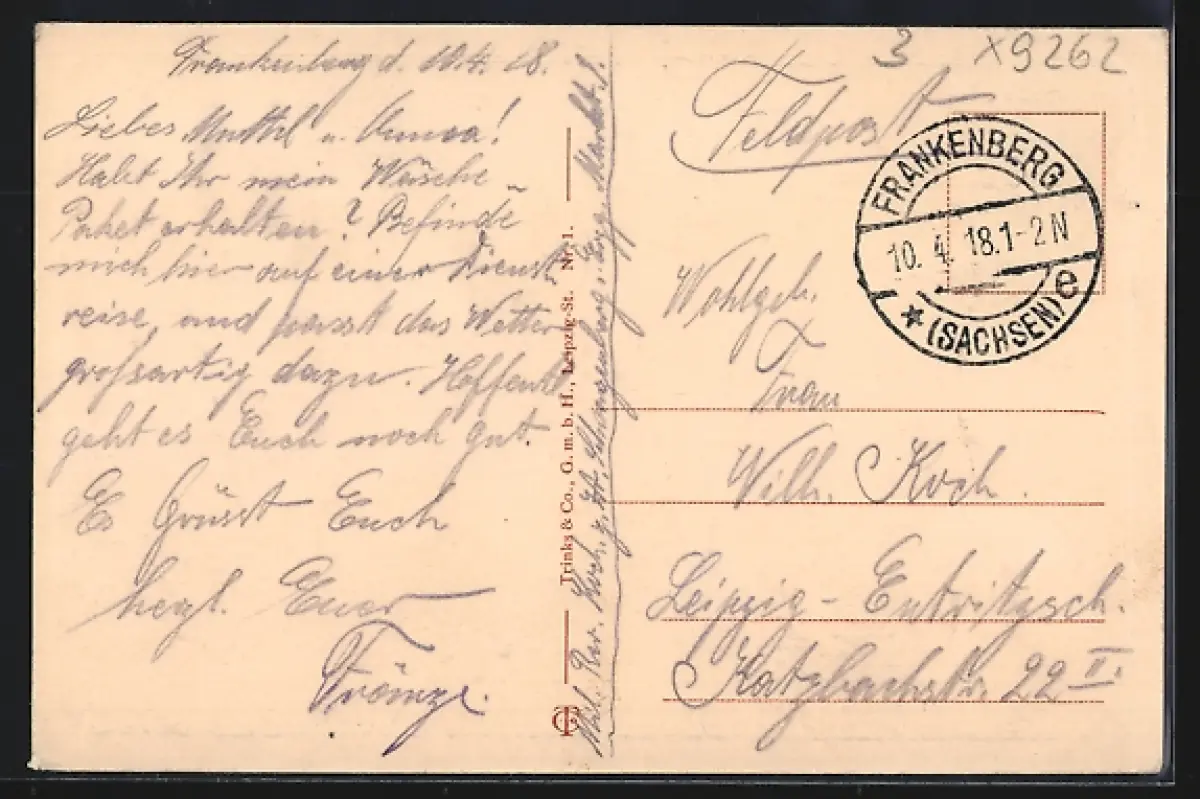 Frankenberg d. 10.4.18.
Liebes Muttel u. Anna!
Habt Ihr mein Wäsche-
Paket erhalten? Befinde
mich hier auf einer Dienst-
reise, und passt das Wetter
großartig dazu. Hoffentl.
geht es Euch noch gut.
Es Grüsst Euch
herzl. Euer
Trinks & Co., G. m. b. H., Leipzig-St. Nr. 1.
Koch, Erzg. Markt
3 x9262
Feldpost
FRANKENBERG
10. 4. 18. 1-2 N
* (SACHSEN) e
Wohlgeb.
Frau
Wilh. Koch.
Leipzig-Eutritzsch.
Katzbachstr. 22 II.